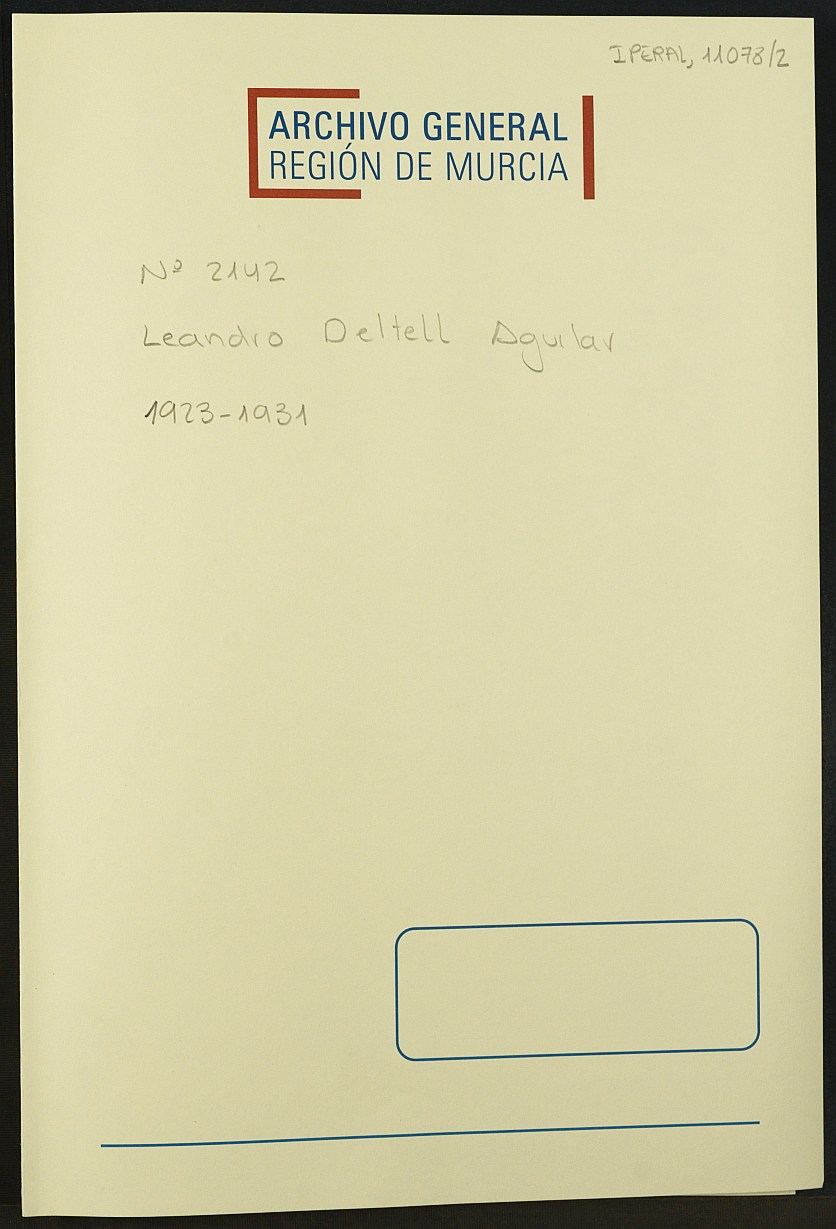 IPERAL, 11078/2
ARCHIVO GENERAL
REGIÓN DE MURCIA
Nº 2142
Leandro Deltell Aguilar
1923-1931